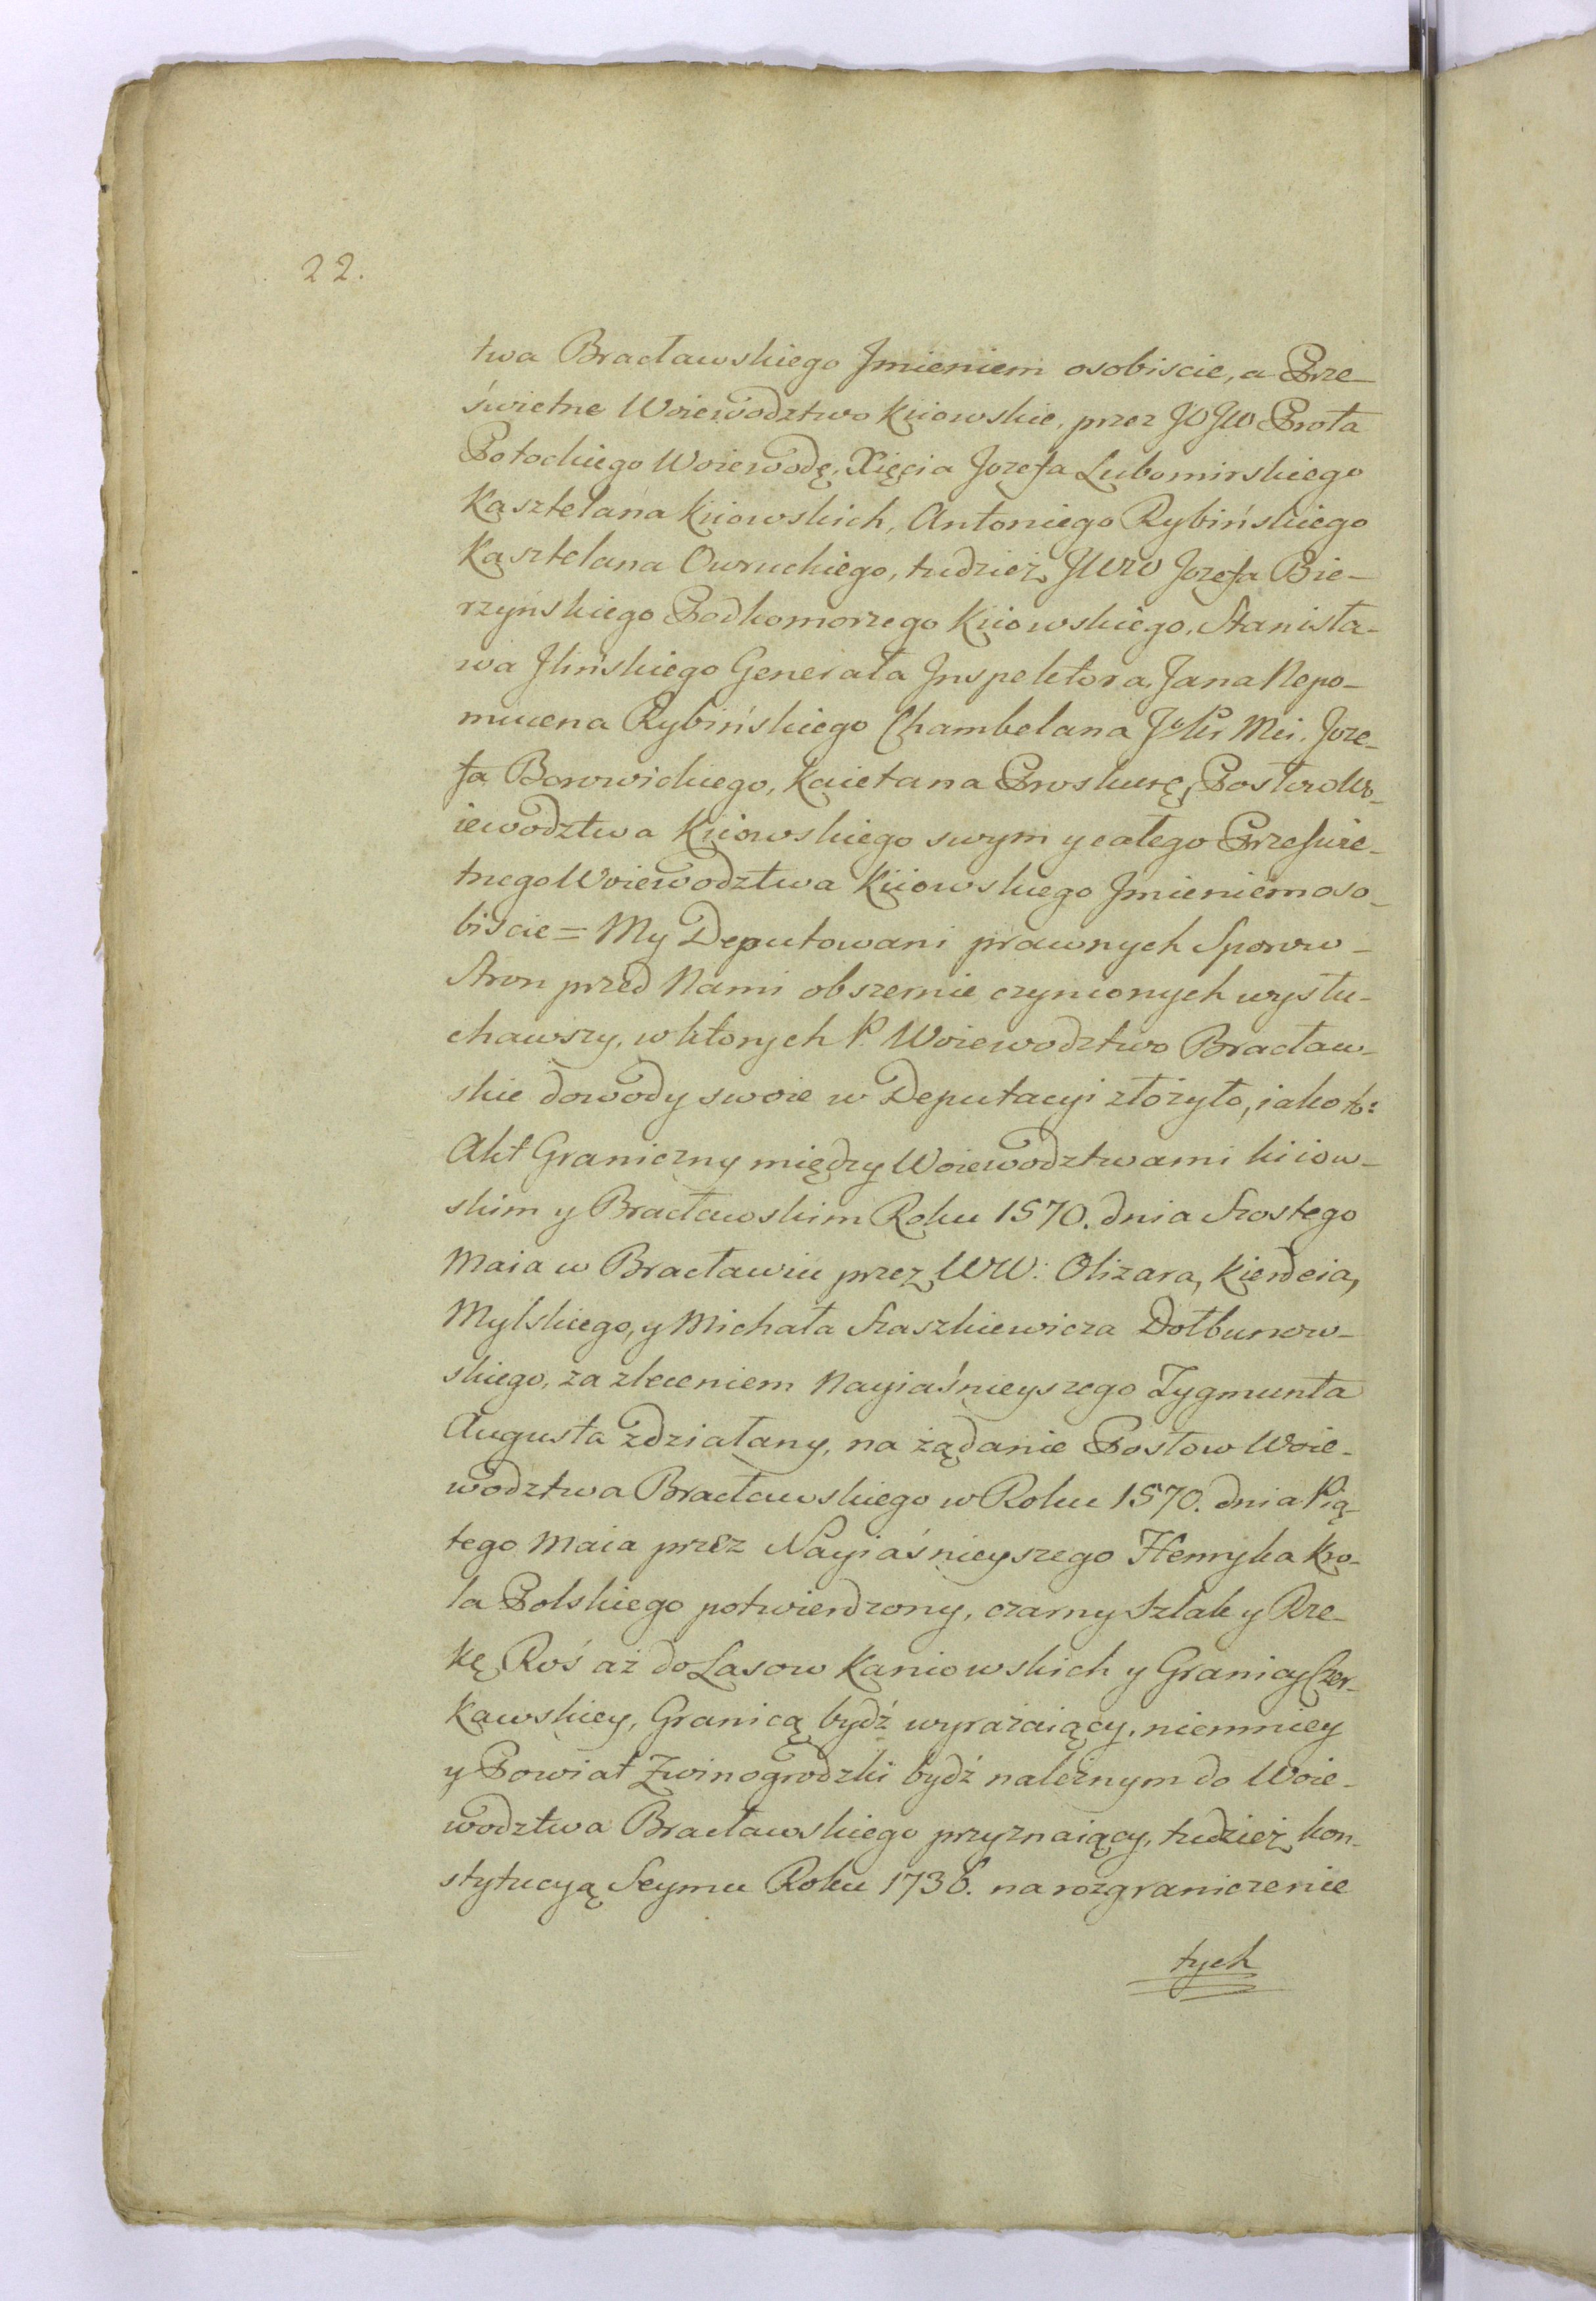 22.
twa Bracławskiego Jmieniem osobiscie, a Prze-
świetne Woiewodztwo Kiiowskie, przez JOJW Prota
Potockiego Woiewodę, Xięcia Jozefa Lubomirskiego
Kasztelana Kiiowskich, Antoniego Rybińskiego
Kasztelana Owruckiego, tudzież JWW Jozefa Bie-
rzyńskiego Podkomorzego Kiiowskiego, Stanisła-
wa Jlińskiego Generała Jnspektora, Jana Nepo-
mucena Rybińskiego Chambelana JKr Mci, Joze-
fa Borowickiego, Kaietana Proskurę, Posłow Wo-
iewodztwa Kiiowskiego swym y całego Przeswie-
tnego Woiewodztwa Kiiowskiego Jmieniem oso-
biscie = My Deputowani prawnych Sporow -
Stron przed Nami obszernie czynionych wysłu-
chawszy, w ktorych P. Woiewodztwo Bracław-
skie dowody swoie w Deputacyi złożyło, iako to:
Akt Graniczny między Woiewodztwami kiiow-
skim y Bracławskim Roku 1570. dnia Szostego
Maia w Bracławiu przez WW: Olizara, Kierdeia,
Mylskiego, y Michała Szaszkiewicza Dołbunow-
skiego, za zleceniem Nayiaśnieyszego Zygmunta
Augusta zdziałany, na żądanie Posłow Woie-
wodztwa Bracławskiego w Roku 1570. dnia Pią-
tego Maia przez Nayiaśnieyszego Henryka Kro-
la Polskiego potwierdzony, czarny Szlak y Rze-
kę Roś aż do Lasow Kaniowskich y Granicy Czer-
kawskiey, Granicą bydź wyrażaiący, niemniey
y Powiat Zwinogrodzki bydź należnym do Woie-
wodztwa Bracławskiego przyznaiący, tudzież kon-
stytucyą Seymu Roku 1736. na rozgraniczenie
tych